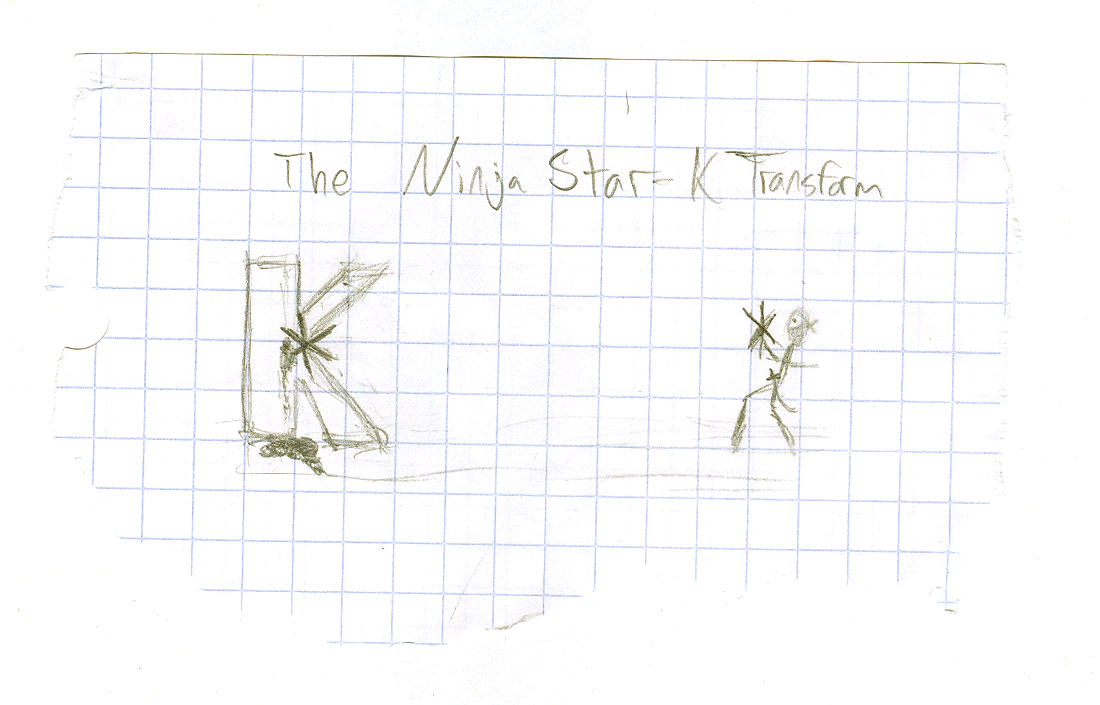 The Ninja Star-K Transform
K